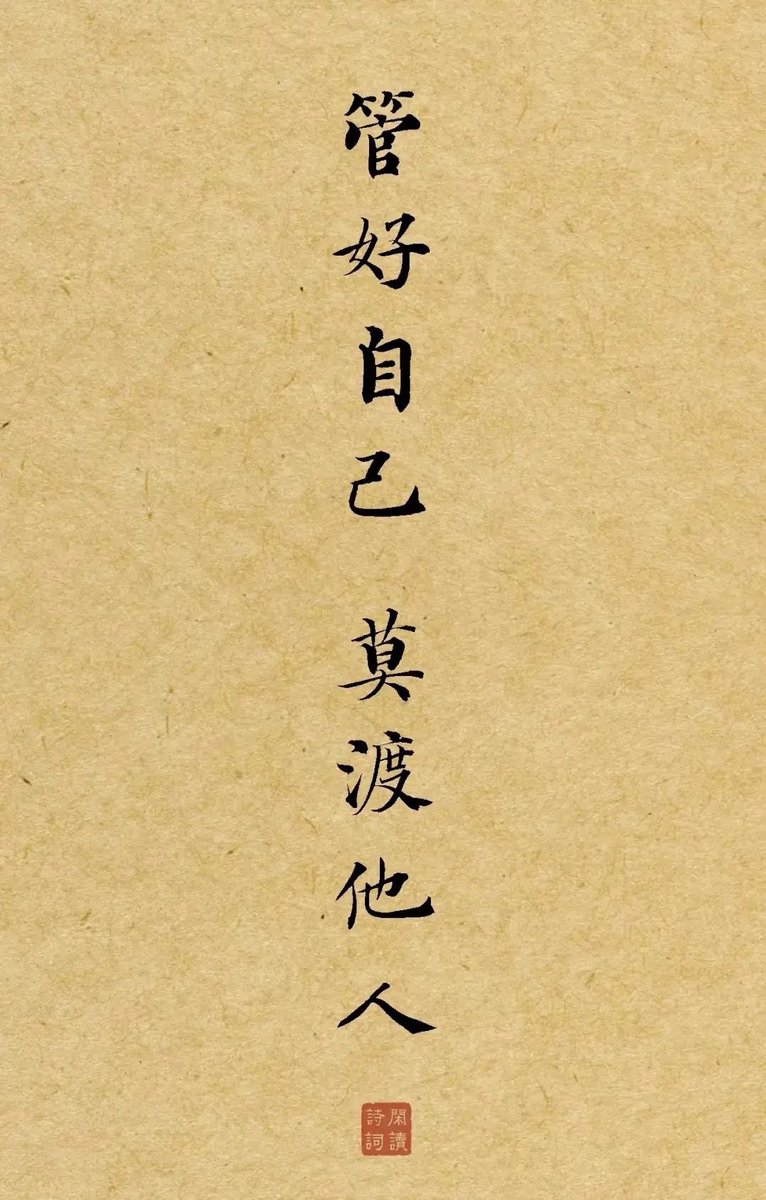 管好自己 莫渡他人
閑讀
詩詞